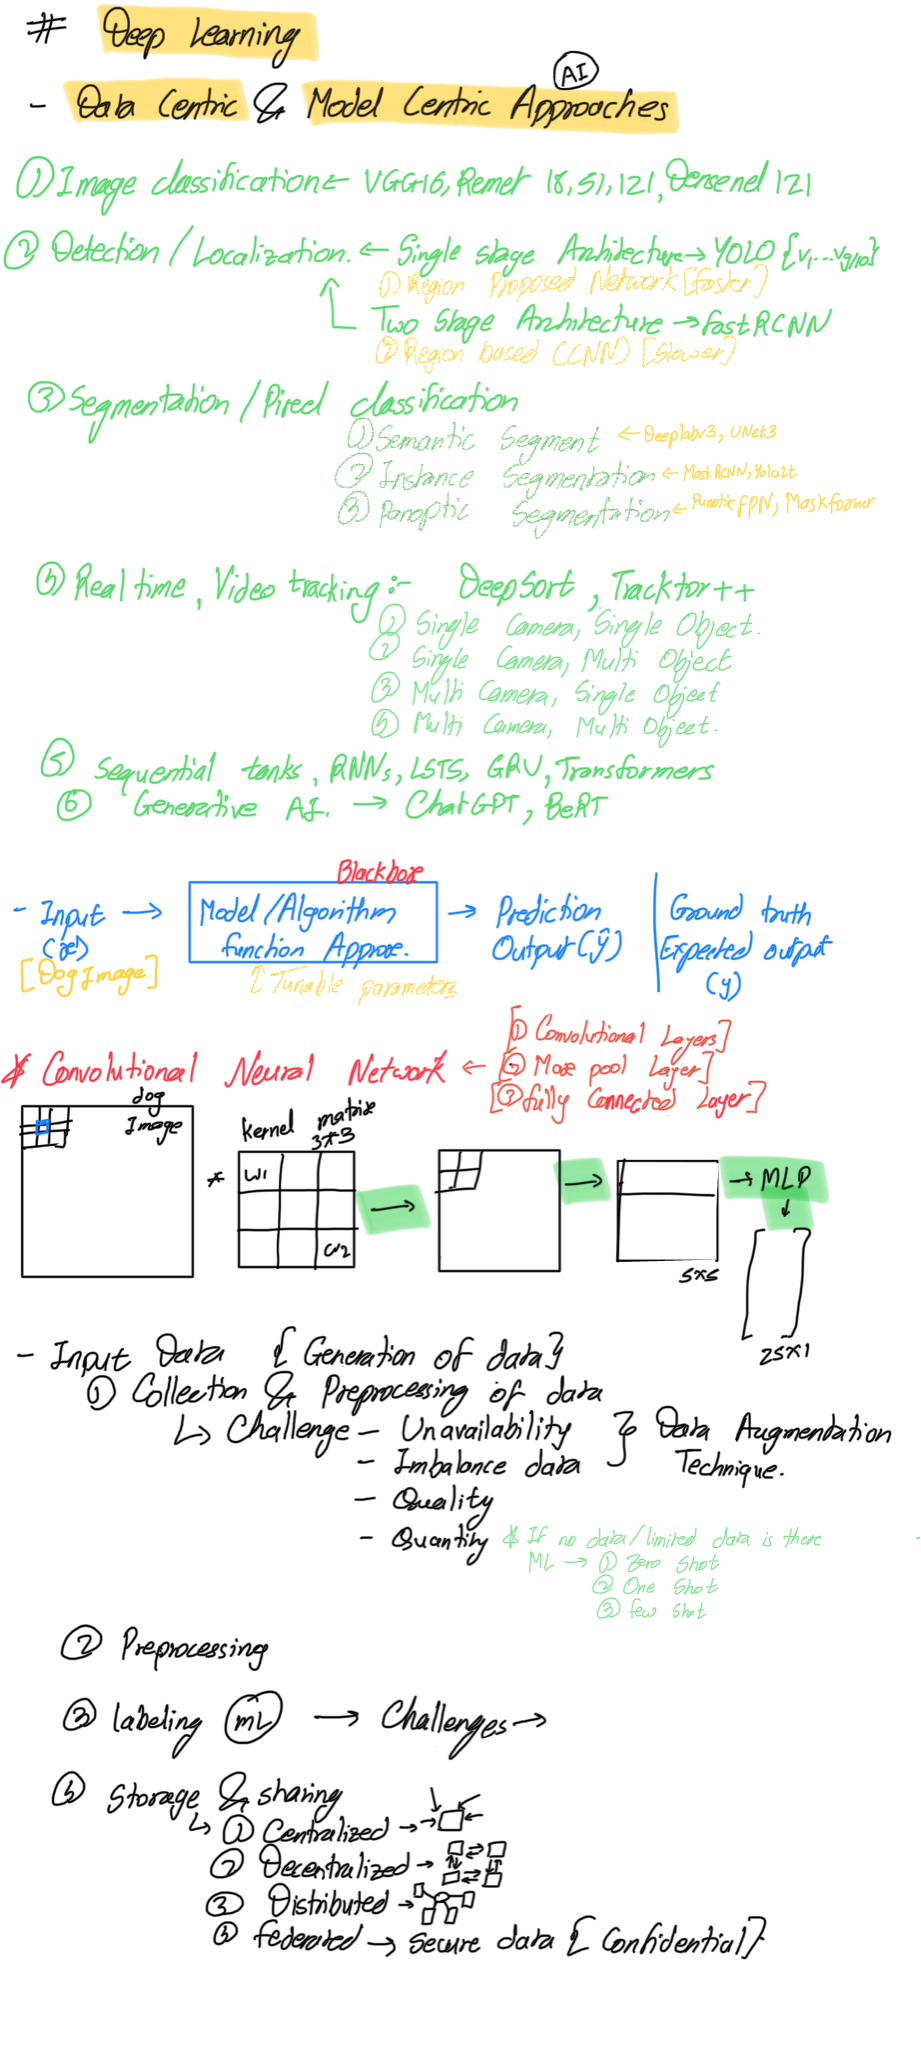 # Deep Learning
AI
- Data Centric & Model Centric Approaches
① Image classification ← VGG16, Resnet 18, 51, 121, Densenet 121
② Detection / Localization. ← Single stage Architecture → YOLO {v1...v9/10}
① Region Proposed Network [faster]
Two Stage Architecture → fast RCNN
② Region based (CNN) [Slower]
③ Segmentation / Pixel classification
① Semantic Segment ← Deeplabv3, UNet3
② Instance Segmentation ← Mask RNN, Yolact
③ Panoptic Segmentation ← Panoptic FPN, Maskformer
④ Real time, Video tracking :- DeepSort, Tracktor++
① Single Camera, Single Object.
② Single Camera, Multi Object
③ Multi Camera, Single Object
④ Multi Camera, Multi Object.
⑤ Sequential tanks, RNNs, LSTS, GRU, Transformers
⑥ Generative AI. → ChatGPT, BeRT
Blackbox
- Input → Model/Algorithm → Prediction | Ground truth
(x) function Approx. Output (ŷ) Expected output
[Dog Image] ↑ Tunable parameters (y)
[① Convolutional Layers]
* Convolutional Neural Network ← [② Max pool Layer]
[③ fully Connected Layer]
dog
Image
kernel matrix
3x3
* w1 → → → MLP
w2
↓
5x5
25x1
- Input Data { Generation of data}
① Collection & Preprocessing of data
↳ Challenge - Unavailability } Data Augmentation
- Imbalance data Technique.
- Quality
- Quantity * If no data/limited data is there
ML → ① Zero shot
② One shot
③ few shot
② Preprocessing
③ labeling (ML) → Challenges →
④ Storage & sharing
↳ ① Centralized →
② Decentralized →
③ Distributed →
④ federated → secure data { Confidential}